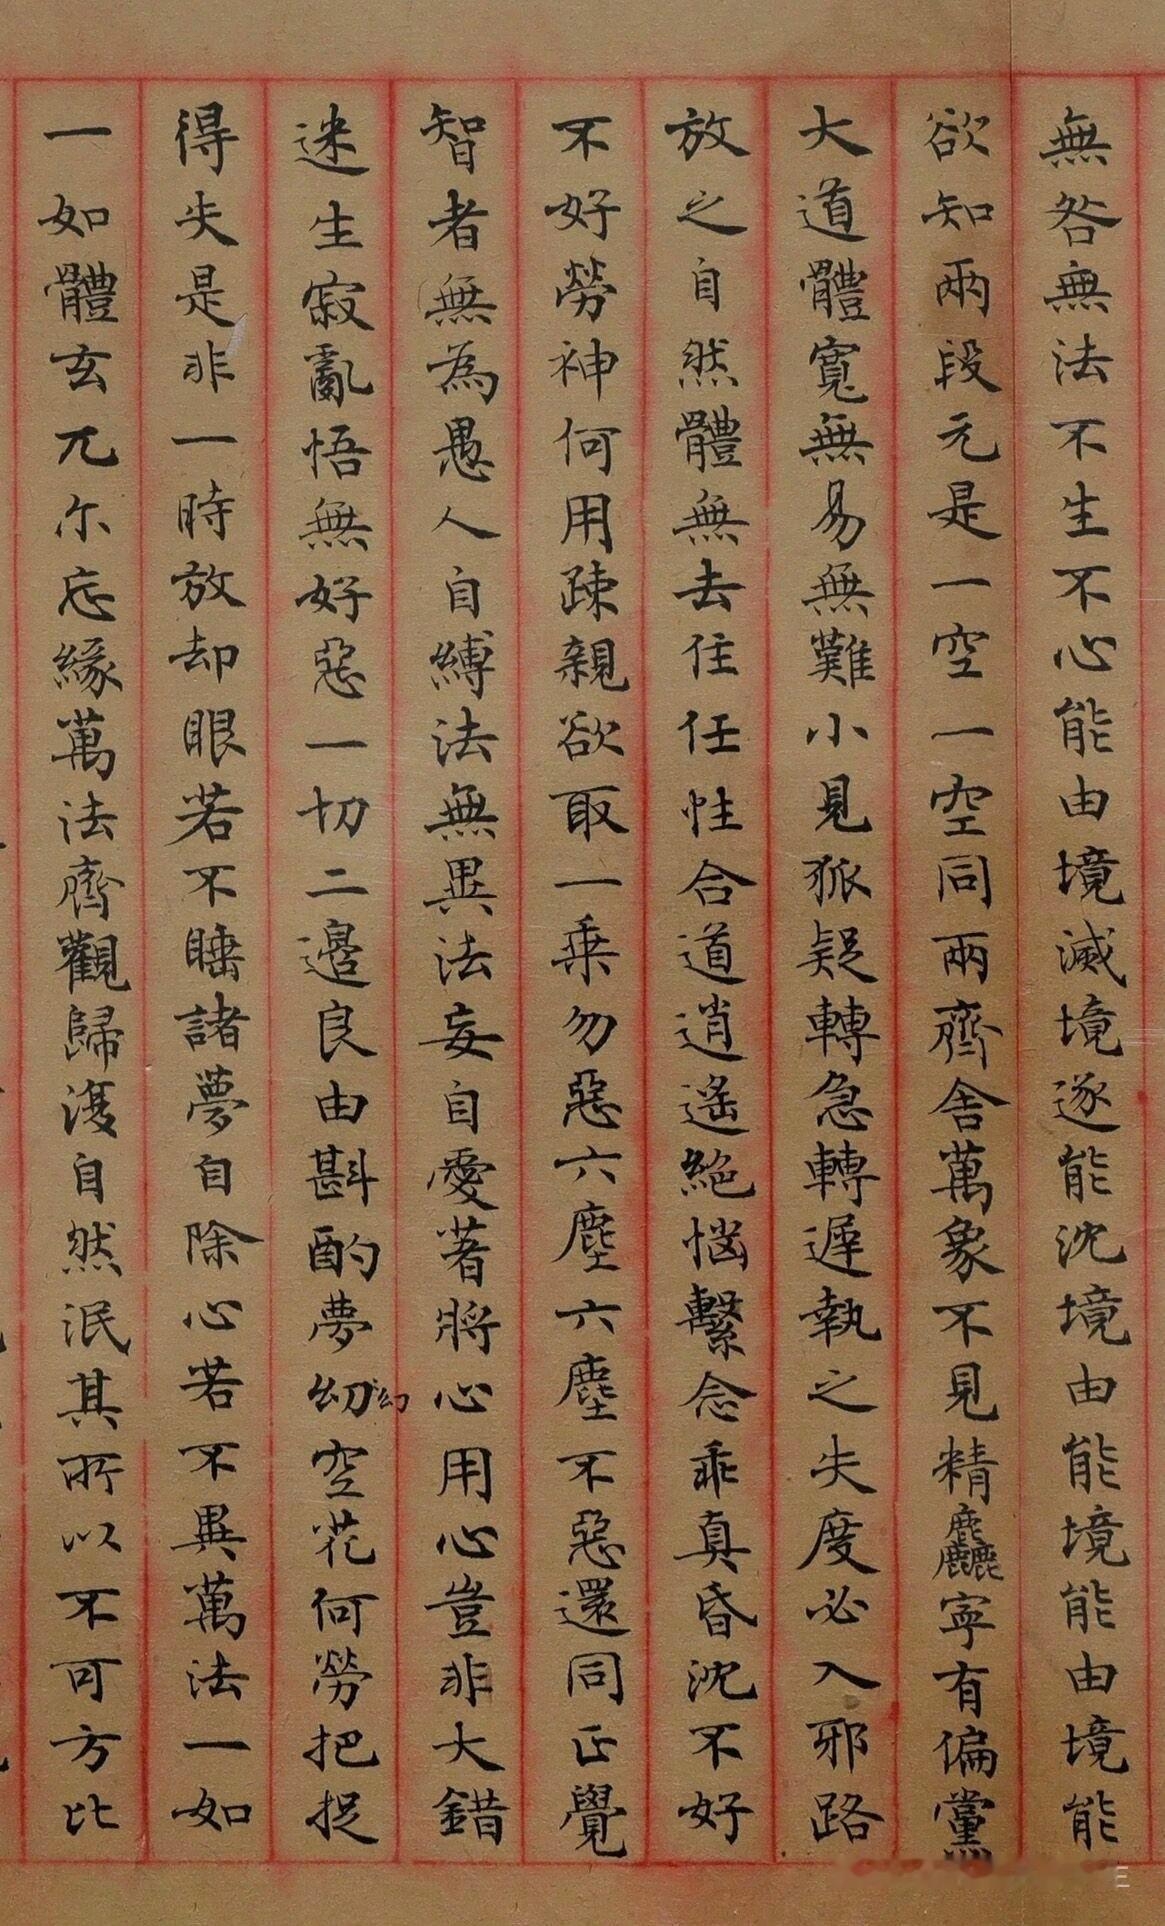 無咎無法不生不心能由境滅境逐能沈境由能境能由境能
欲知兩段元是一空一空同兩齊含萬象不見精麤寧有偏黨
大道體寬無易無難小見狐疑轉急轉遲執之失度必入邪路
放之自然體無去住任性合道逍遙絕惱繫念乖真昏沈不好
不好勞神何用疎親欲取一乘勿惡六塵六塵不惡還同正覺
智者無為愚人自縛法無異法妄自愛著將心用心豈非大錯
迷生寂亂悟無好惡一切二邊良由斟酌夢幻幻空花何勞把捉
得失是非一時放却眼若不睡諸夢自除心若不異萬法一如
一如體玄兀尔忘緣萬法齊觀歸復自然泯其所以不可方比